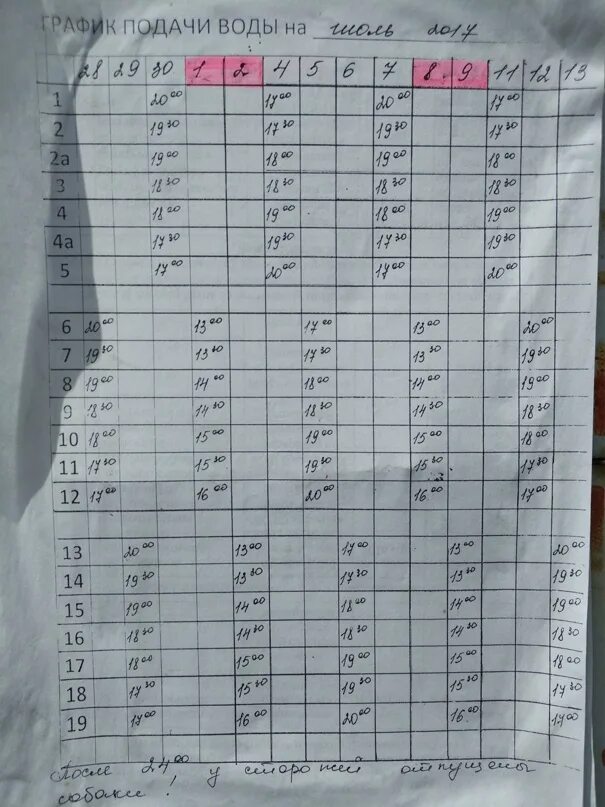 ГРАФИК ПОДАЧИ ВОДЫ на июль 2017
28 29 30 1 2 4 5 6 7 8 9 11 12 13
1 20 00 17 00 20 00 17 00
2 19 30 17 30 19 30 17 30
2а 19 00 18 00 19 00 18 00
3 18 30 18 30 18 30 18 30
4 18 00 19 00 18 00 19 00
4а 17 30 19 30 17 30 19 30
5 17 00 20 00 17 00 20 00
6 20 00 13 00 17 00 13 00 20 00
7 19 30 13 30 17 30 13 30 19 30
8 19 00 14 00 18 00 14 00 19 00
9 18 30 14 30 18 30 14 30 18 30
10 18 00 15 00 19 00 15 00 18 00
11 17 30 15 30 19 30 15 30 17 30
12 17 00 16 00 20 00 16 00 17 00
13 20 00 13 00 17 00 13 00 20 00
14 19 30 13 30 17 30 13 30 19 30
15 19 00 14 00 18 00 14 00 19 00
16 18 30 14 30 18 30 14 30 18 30
17 18 00 15 00 19 00 15 00 18 00
18 17 30 15 30 19 30 15 30 17 30
19 17 00 16 00 20 00 16 00 17 00
После 24 00 у сторожей отпущены
собаки!